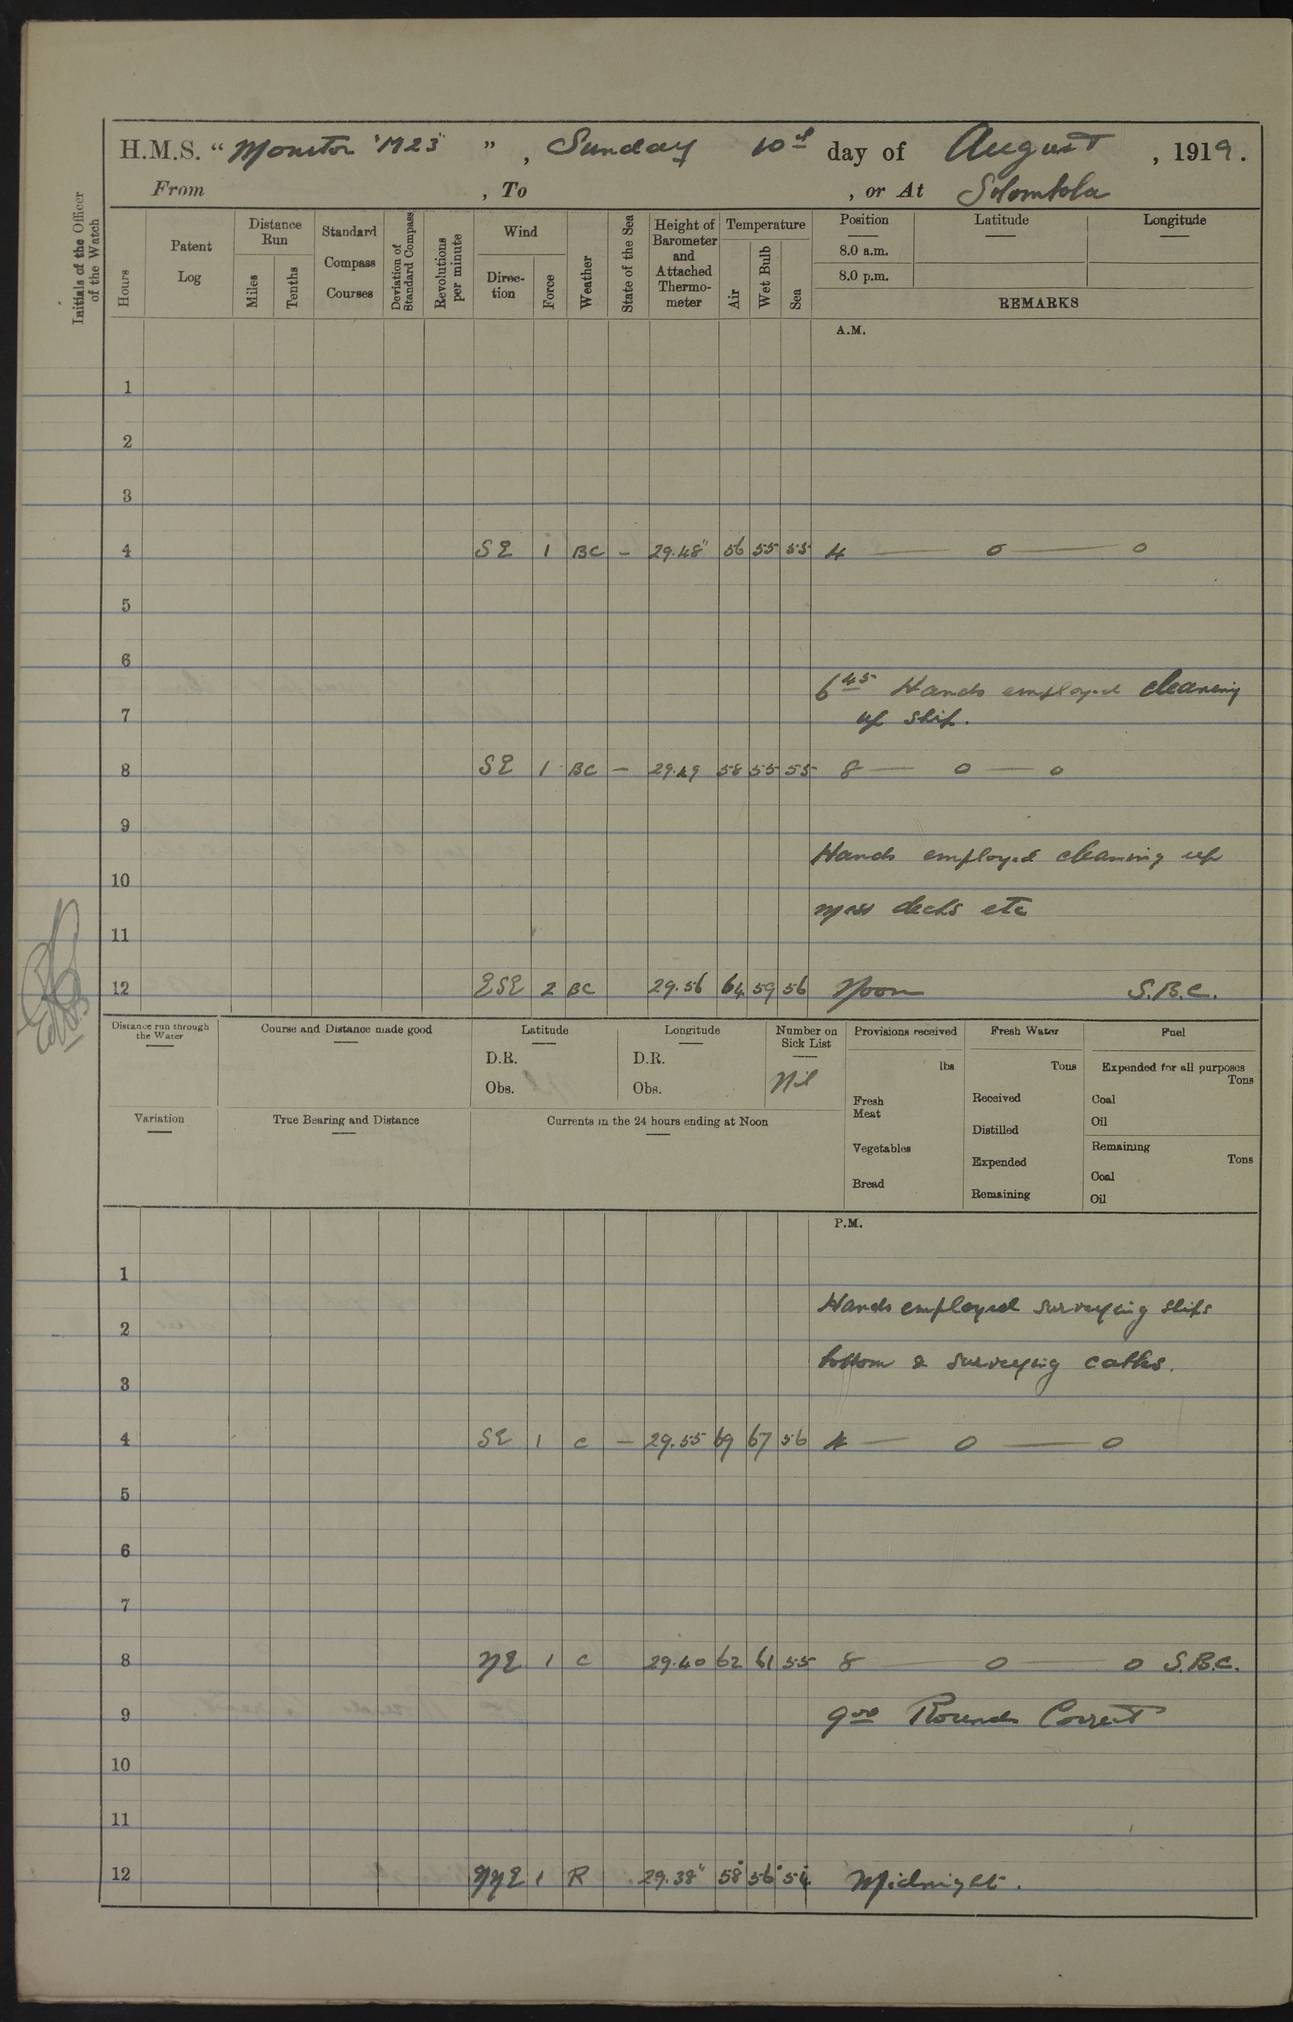 H.M.S. “Monitor "M23" ” , Sunday 10th day of August , 1919.
From , To , or At Solombola
Initials of the Officer of the Watch
Hours
Patent Log
Distance Run
Miles
Tenths
Standard Compass Courses
Deviation of Standard Compass
Revolutions per minute
Wind
Direc-tion
Force
Weather
State of the Sea
Height of Barometer and Attached Thermo-meter
Temperature
Air
Wet Bulb
Sea
Position Latitude Longitude
8.0 a.m.
8.0 p.m.
REMARKS
A.M.
1
2
3
4 SE 1 BC – 29.48" 56 55 55 4 — o — o
5
6
6 45 Hands employed cleaning
7 up ship.
8 SE 1 BC – 29.49 58 55 55 8 — o — o
9
Hands employed cleaning up
10
mess decks etc
11
12 ESE 2 BC 29.56 64 59 56 Noon S.B.C.
Distance run through the Water
Course and Distance made good
Latitude
D.R.
Obs.
Longitude
D.R.
Obs.
Number on Sick List
Nil
Provisions received
lbs
Fresh Meat
Vegetables
Bread
Fresh Water
Tons
Received
Distilled
Expended
Remaining
Fuel
Expended for all purposes
Tons
Coal
Oil
Remaining
Tons
Coal
Oil
Variation
True Bearing and Distance
Currents in the 24 hours ending at Noon
P.M.
1
Hands employed surveying ships
2
bottom & surveying cables.
3
4 SE 1 C – 29.55 69 67 56 4 — o — o
5
6
7
8 NE 1 C 29.40 62 61 55 8 — o — o S.B.C.
9 9 00 Rounds Correct
10
11
12 NNE 1 R 29.38" 58° 56° 54 Midnight.